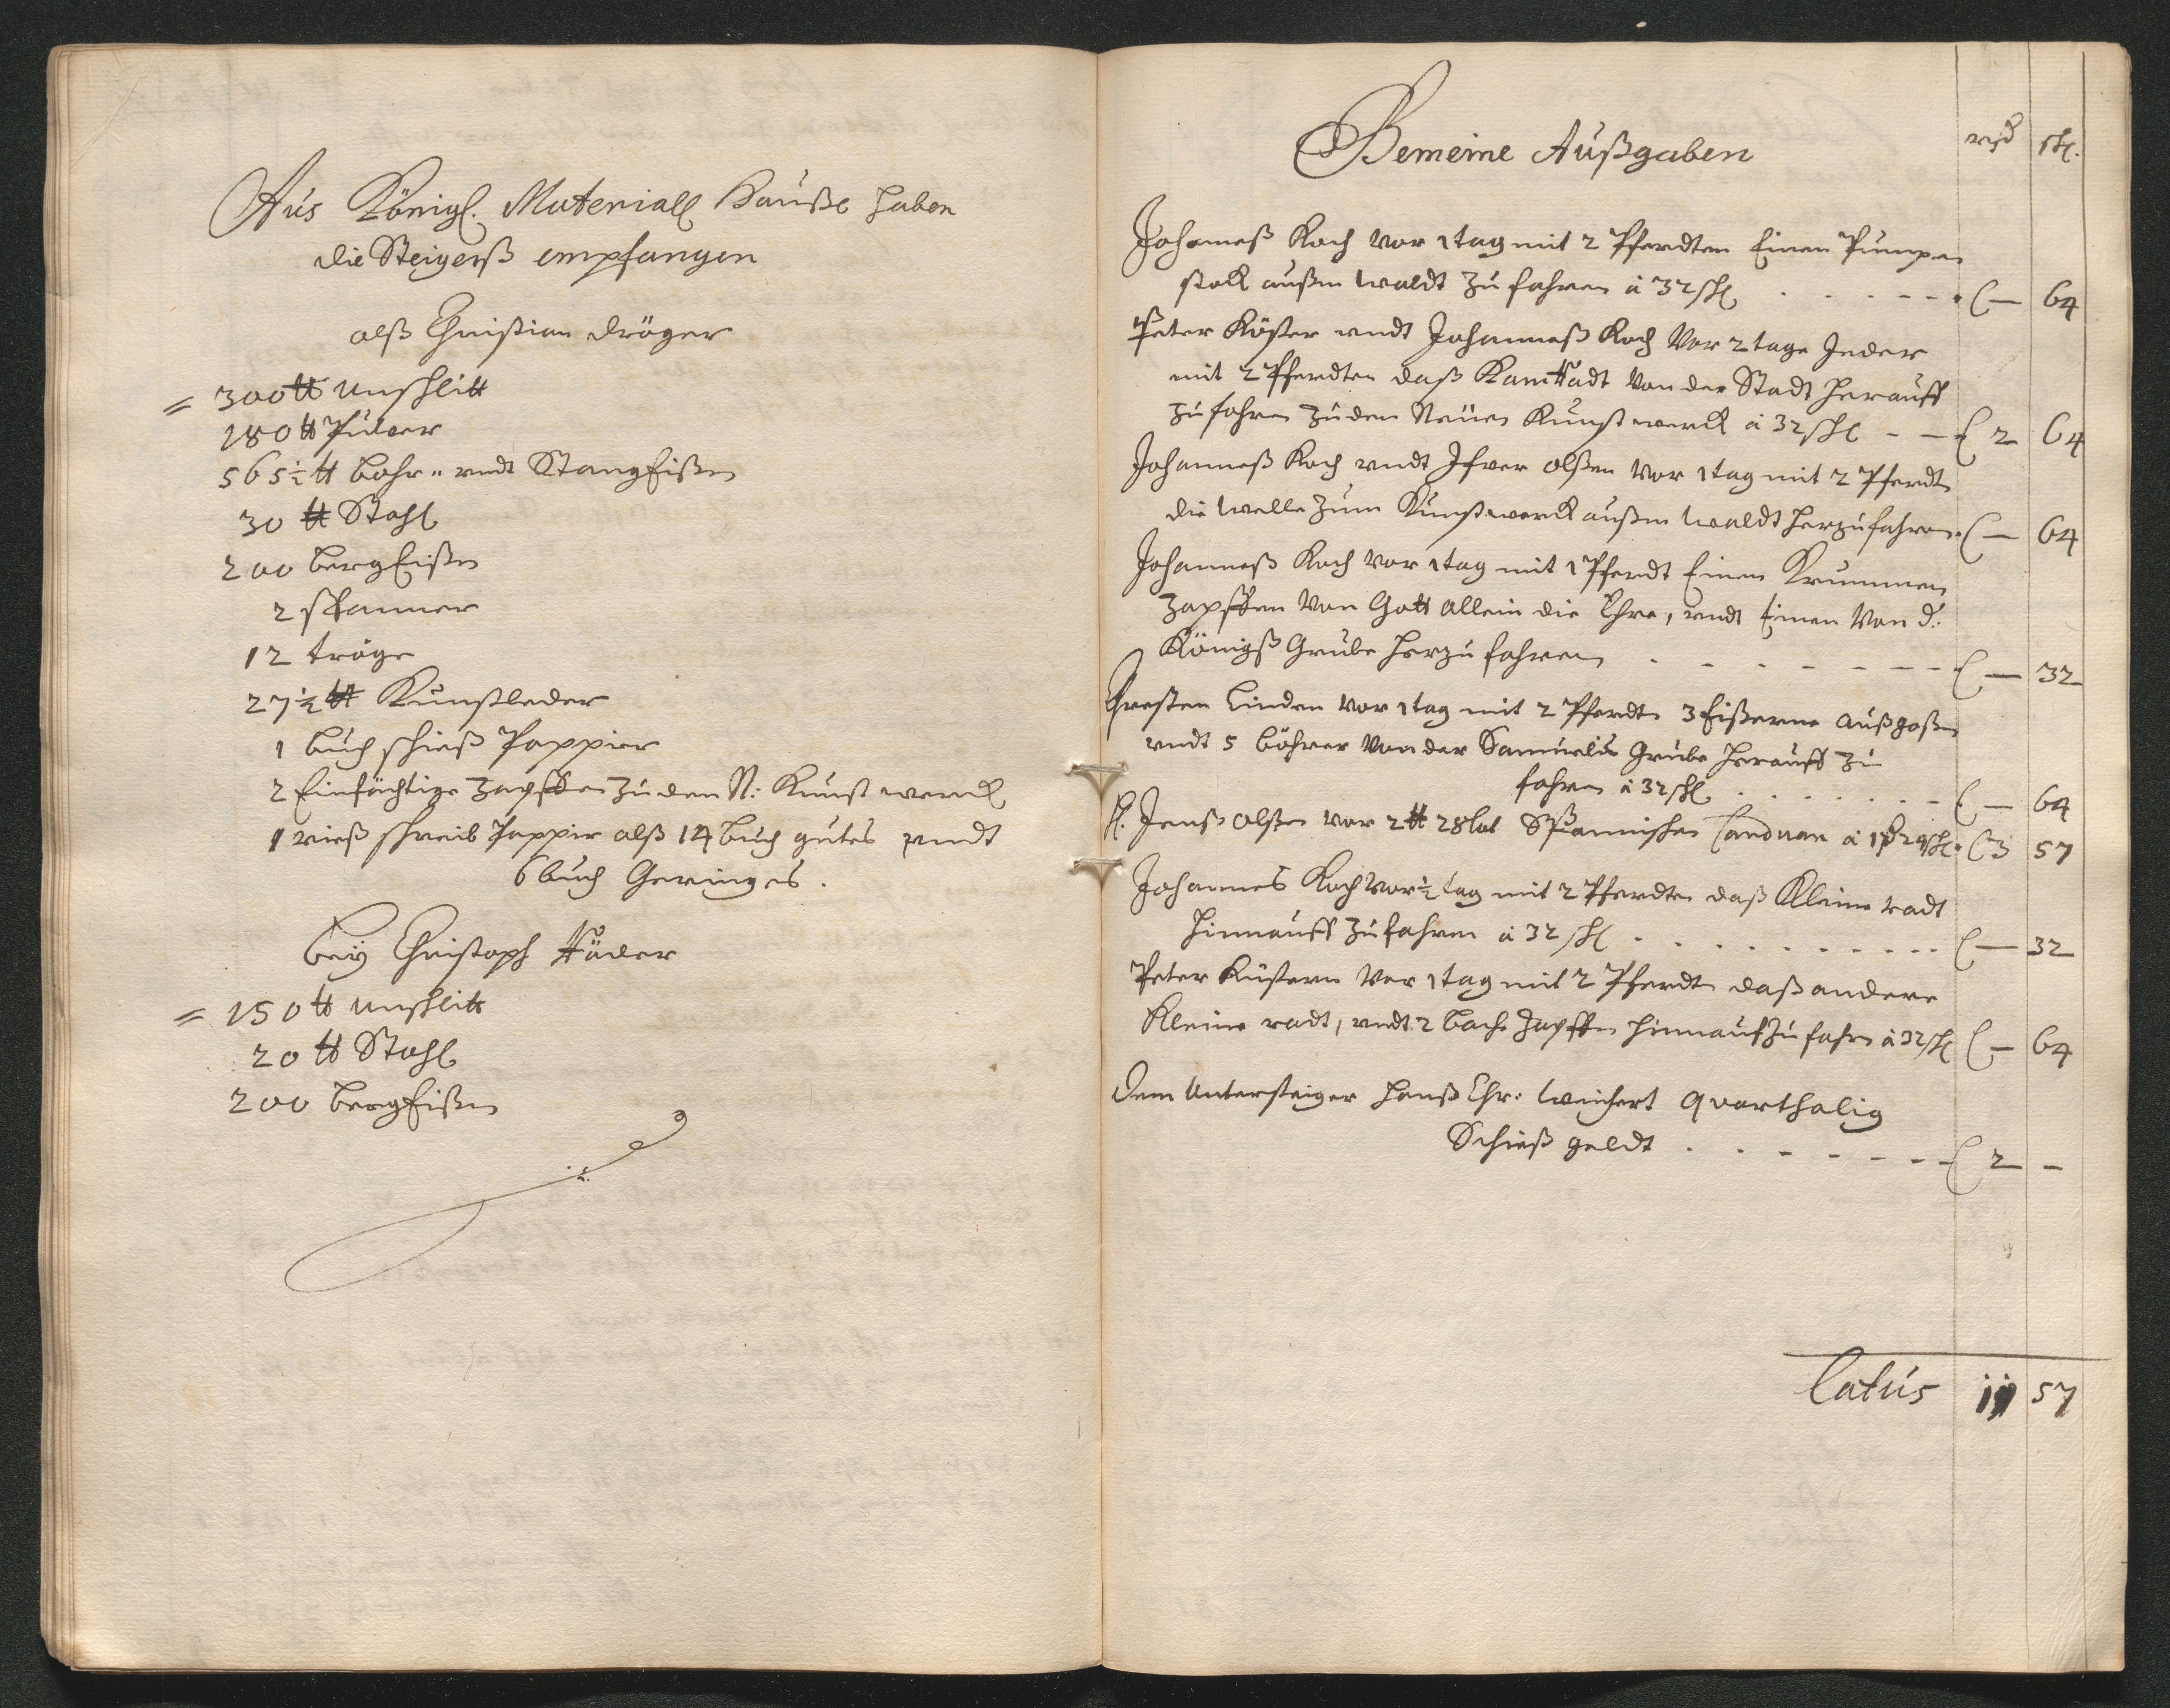 Aus Königl. Materiall Hauße haben
die Steigerß empfangen
alß Christian dröger
= 300 ℔ unschlitt
180 ℔ Pulver
565½ ℔ bohr= undt StangEißen
30 ℔ Stahl
200 bergEißen
2 spanner
12 tröge
27½ ℔ Kunstleder
1 buch schieß Pappier
2 Einfächtige Zapffen zu den N: Kunst werck
1 rieß schreib Pappir alß 14 buch gutes undt
6 buch Geringes.
beÿ Christoph Häder
= 150 ℔ unschlitt
20 ℔ Stahl
200 bergEißen
Gemeine Außgaben
rthlr sch.
Johanneß Koch vor 1 tag mit 2 Pferdten Einen Pumpen
stock außm waldt zu fahren â 32 sch . . . . — 64
Peter Köster undt Johanneß Koch vor 2 tage Jeder
mit 2 Pferdten daß Kamradt von der Stadt herauff
zu fahren zu den Neuen Kunst werck â 32 sch - - 2 64
Johanneß Koch undt Ifver olßen vor 1 tag mit 2 Pferdt
die welle zum Kunstwerck außm waldt herzufahren — 64
Johanneß Koch vor 1 tag mit 1 Pferdt Einen Krummen
Zapffen von Gott allein die Ehre, undt Einen von d:
Königß Grube herzu fahren . . . . — 32
Christen Linden vor 1 tag mit 2 Pferdt 3 Eißerne außgoßen
undt 5 böhrer von der Samuelis Grube herauff zu
fahren â 32 sch . . . . — 64
H. Jenß olßen vor 2 ℔ 28 lot Spannischen Carduan â 1 24 sch. 3 57
Johannes Koch vor ½ tag mit 2 Pferdten daß Kleine radt
hinnauff zu fahren â 32 sch . . . . — 32
Peter Küstern vor 1 tag mit 2 Pferdt daß andere
Kleine radt, undt 2 Zapffen hinnauf zu fahrn â 32 sch — 64
Dem Untersteiger Hanß Chr: Weichert Quarthalig
Schieß geldt . . . . 2 -
Latus 11 57